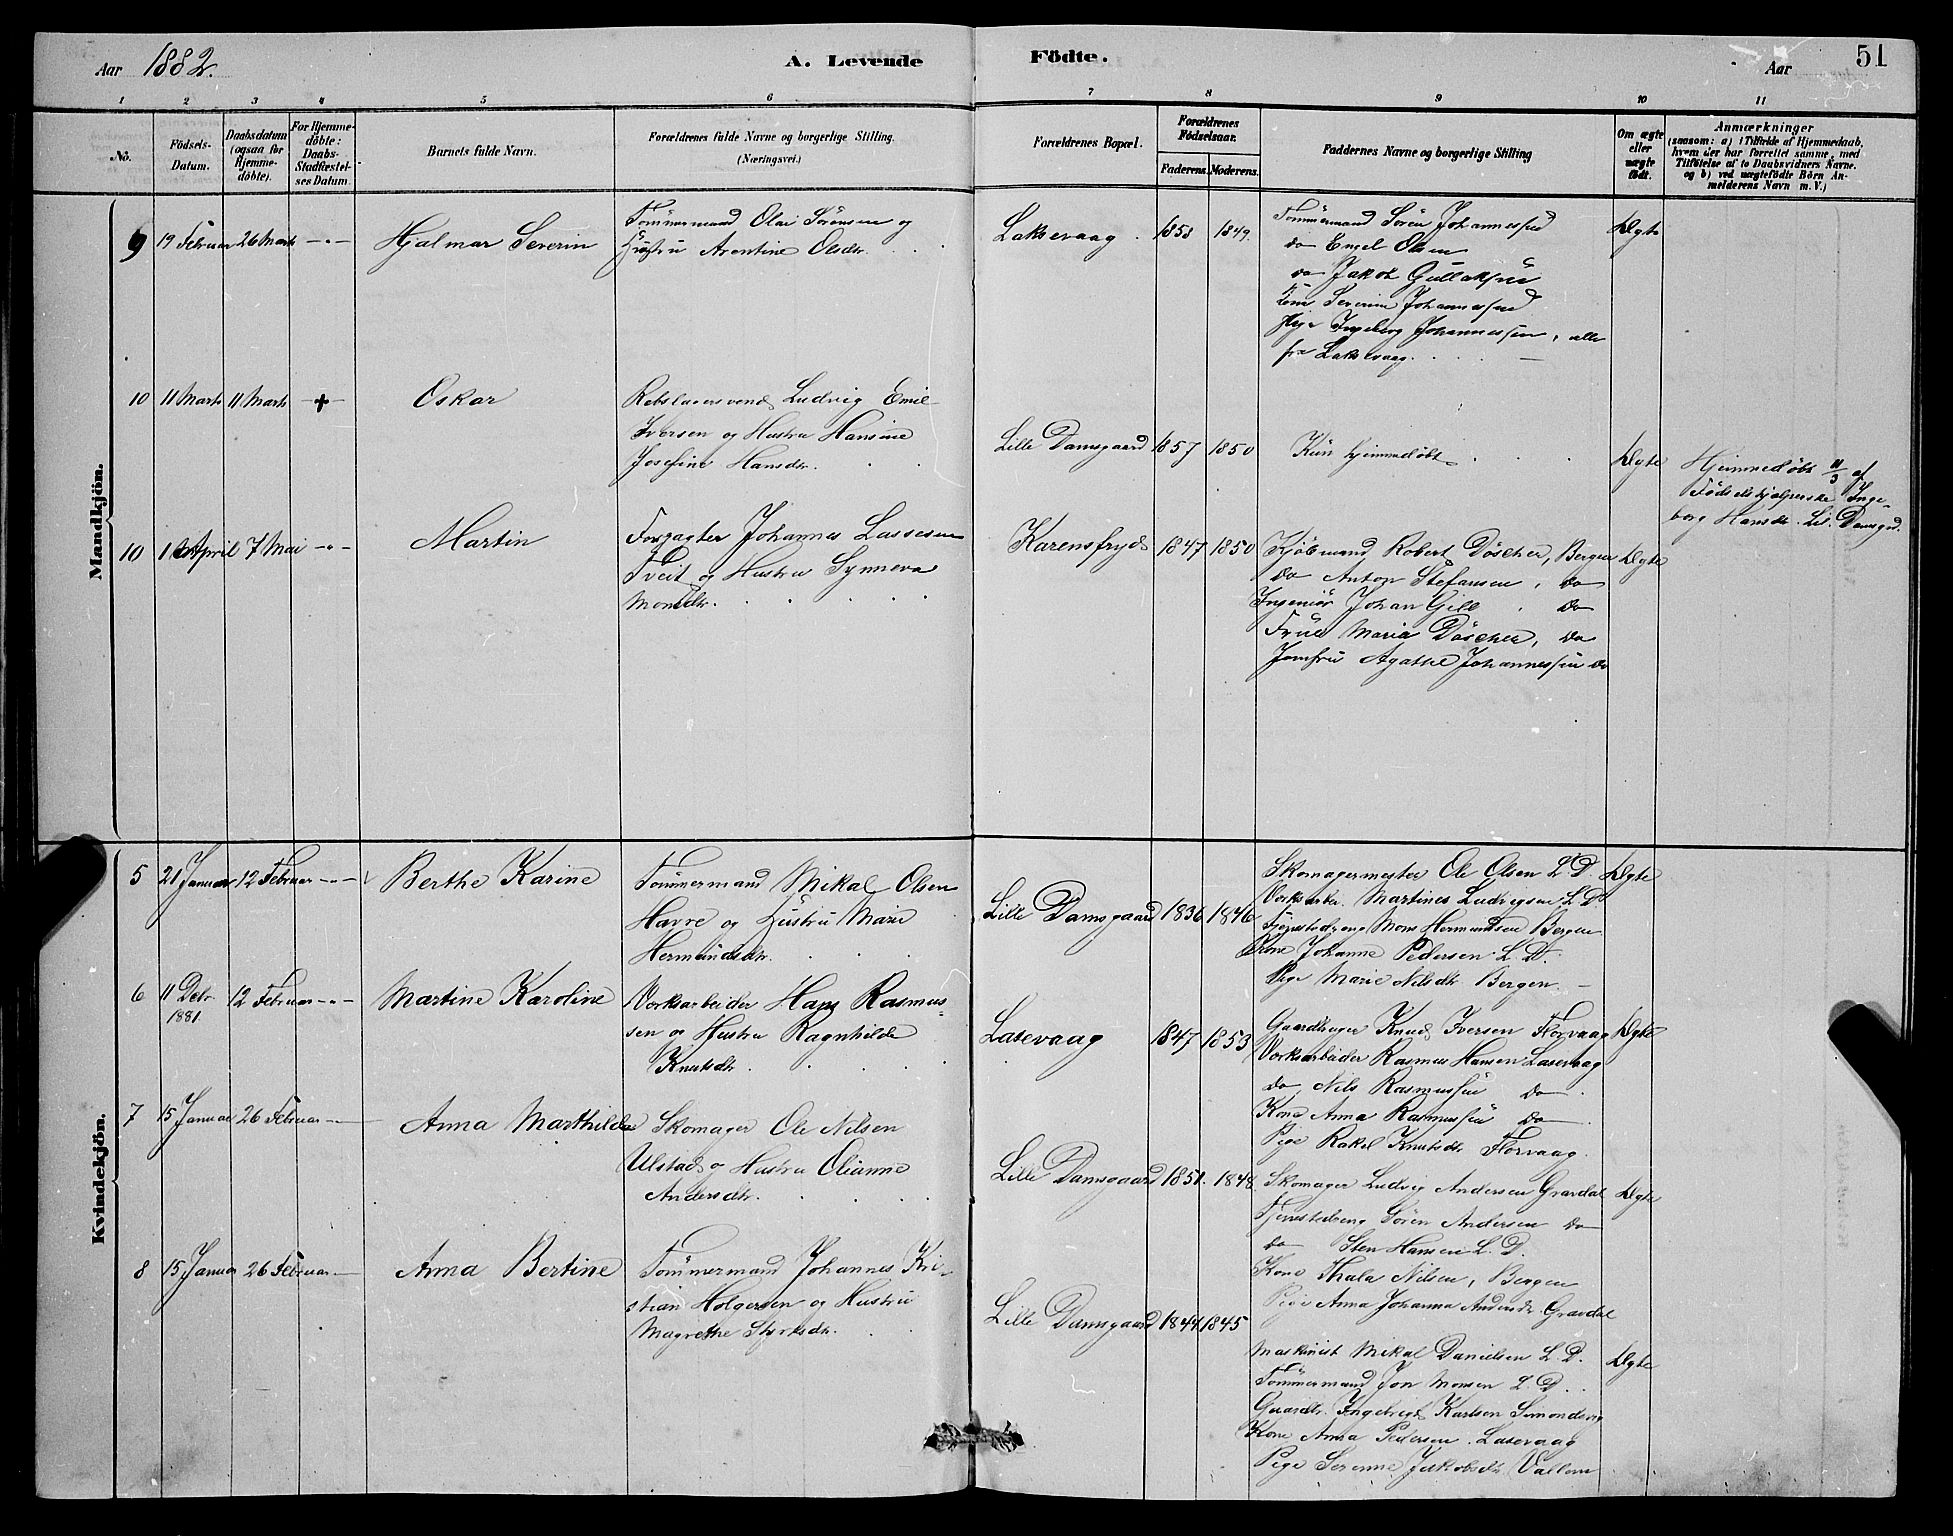 Aar 1882.
A. Levende Födte.
Aar
51
1 2 3 4 5 6 7 8 9 10 11
No.
Födsels-
Datum.
Daabsdatum
(ogsaa for
Hjemme-
döbte).
For Hjemme-
döbte:
Daabs-
Stadfæstel-
ses Datum.
Barnets fulde Navn.
Forældrenes fulde Navne og borgerlige Stilling.
(Næringsvei.)
Forældrenes Bopæl.
Forældrenes
Födselsaar.
Faderens. Moderens.
Faddernes Navne og borgerlige Stilling
Om ægte
eller
uægte
födt.
Anmærkninger
(saasom: a) i Tilfælde af Hjemmedaab,
hvem der har forrettet samme, med
Tilföielse af to Daabsvidners Navne.
og b) ved uægtefödte Börn An-
melderens Navn m. V.)
Mandkjön.
9 19 Februar 26 Marts Hjalmar Severin
Tømmermand Olai Sørensen og
Hustru Arentine Olsdtr.
Laksevaag 1853 1849.
Tømmermand Søren Johannessen
do Engel Olsen
do Jakob Gullaksen
Kone Severine Johannessen
Pige Ingeborg Johannessen, alle
fra Laksevaag.
Ægte
10 11 Marts 11 Marts + Oskar
Rebslagersvend Ludvig Emil
Iversen og Hustru Hansine
Josefine Hansdtr.
Lille Damsgaard 1857 1850
Kun hjemmedøbt
Ægte
Hjemmedøbt 11/3 af
Fødselshjælperske Inge-
borg Hansdtr. Lil. Damsgrd.
10 April 7 Mai Martin
Forpagter Johannes Lassesen
Tveit og Hustru Synneva
Monsdtr.
Karensfryd 1847 1850
Kjøbmand Robert Döscher, Bergen
do Anton Stefansen, do
Ingeniør Johan Gill, do
Frue Maria Döscher, do
Jomfru Agathe Johannessen do
Ægte
Kvindekjön.
5 21 Januar 12 Februar Berthe Karine
Tømmermand Mikal Olsen
Havre og Hustru Marie
Hermundsdtr.
Lille Damsgaard 1836 1846
Skomagermester Ole Olsen L. D.
Værksarbr. Martines Ludvigsen L. D.
Tjenestedreng Mons Hermundsen Bergen
Kone Johanne Pedersen L. D.
Pige Marie Nilsdtr Bergen
Ægte
6 11 Debr. 1881. 12 Februar Martine Karoline
Værksarbeider Hans Rasmus-
sen og Hustru Ragnhilde
Knutsdtr.
Laxevaag 1847 1853
Gaardbruger Knud Iversen Florvaag
Værksarbeider Rasmus Hansen Laxevaag
do Nils Rasmussen do
Kone Anna Rasmussen do
Pige Rakel Knutsdtr Florvaag.
Ægte
7 15 Januar 26 Februar Anna Marthilde
Skomager Ole Nilsen
Ulstad og Hustru Olianne
Andersdtr.
Lille Damsgaard 1851. 1848
Skomager Ludvig Andersen Gravdal
Tjenestedreng Søren Andersen do
do Sten Hansen L. D.
Kone Thala Nilsen, Bergen
Pige Anna Johanna Andersdr. Gravdal
Ægte
8 15 Januar 26 Februar Anna Bertine
Tømmermand Johannes Kri-
stian Holgersen og Hustru
Magrethe Styrksdtr.
Lille Damsgaard 1844 1845
Maskinist Mikal Danielsen L. D.
Tømmermand Jon Monsen L. D.
Gaardbr. Ingebrigt Karlsen Simondsvig
Kone Anna Pedersen. Laxevaag
Pige Serenne Jakobsdtr Vallem
Ægte